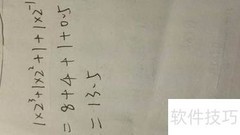 1×2³+1×2²+1+1×2⁻¹
=8+4+1+0.5
=13.5
软件技巧